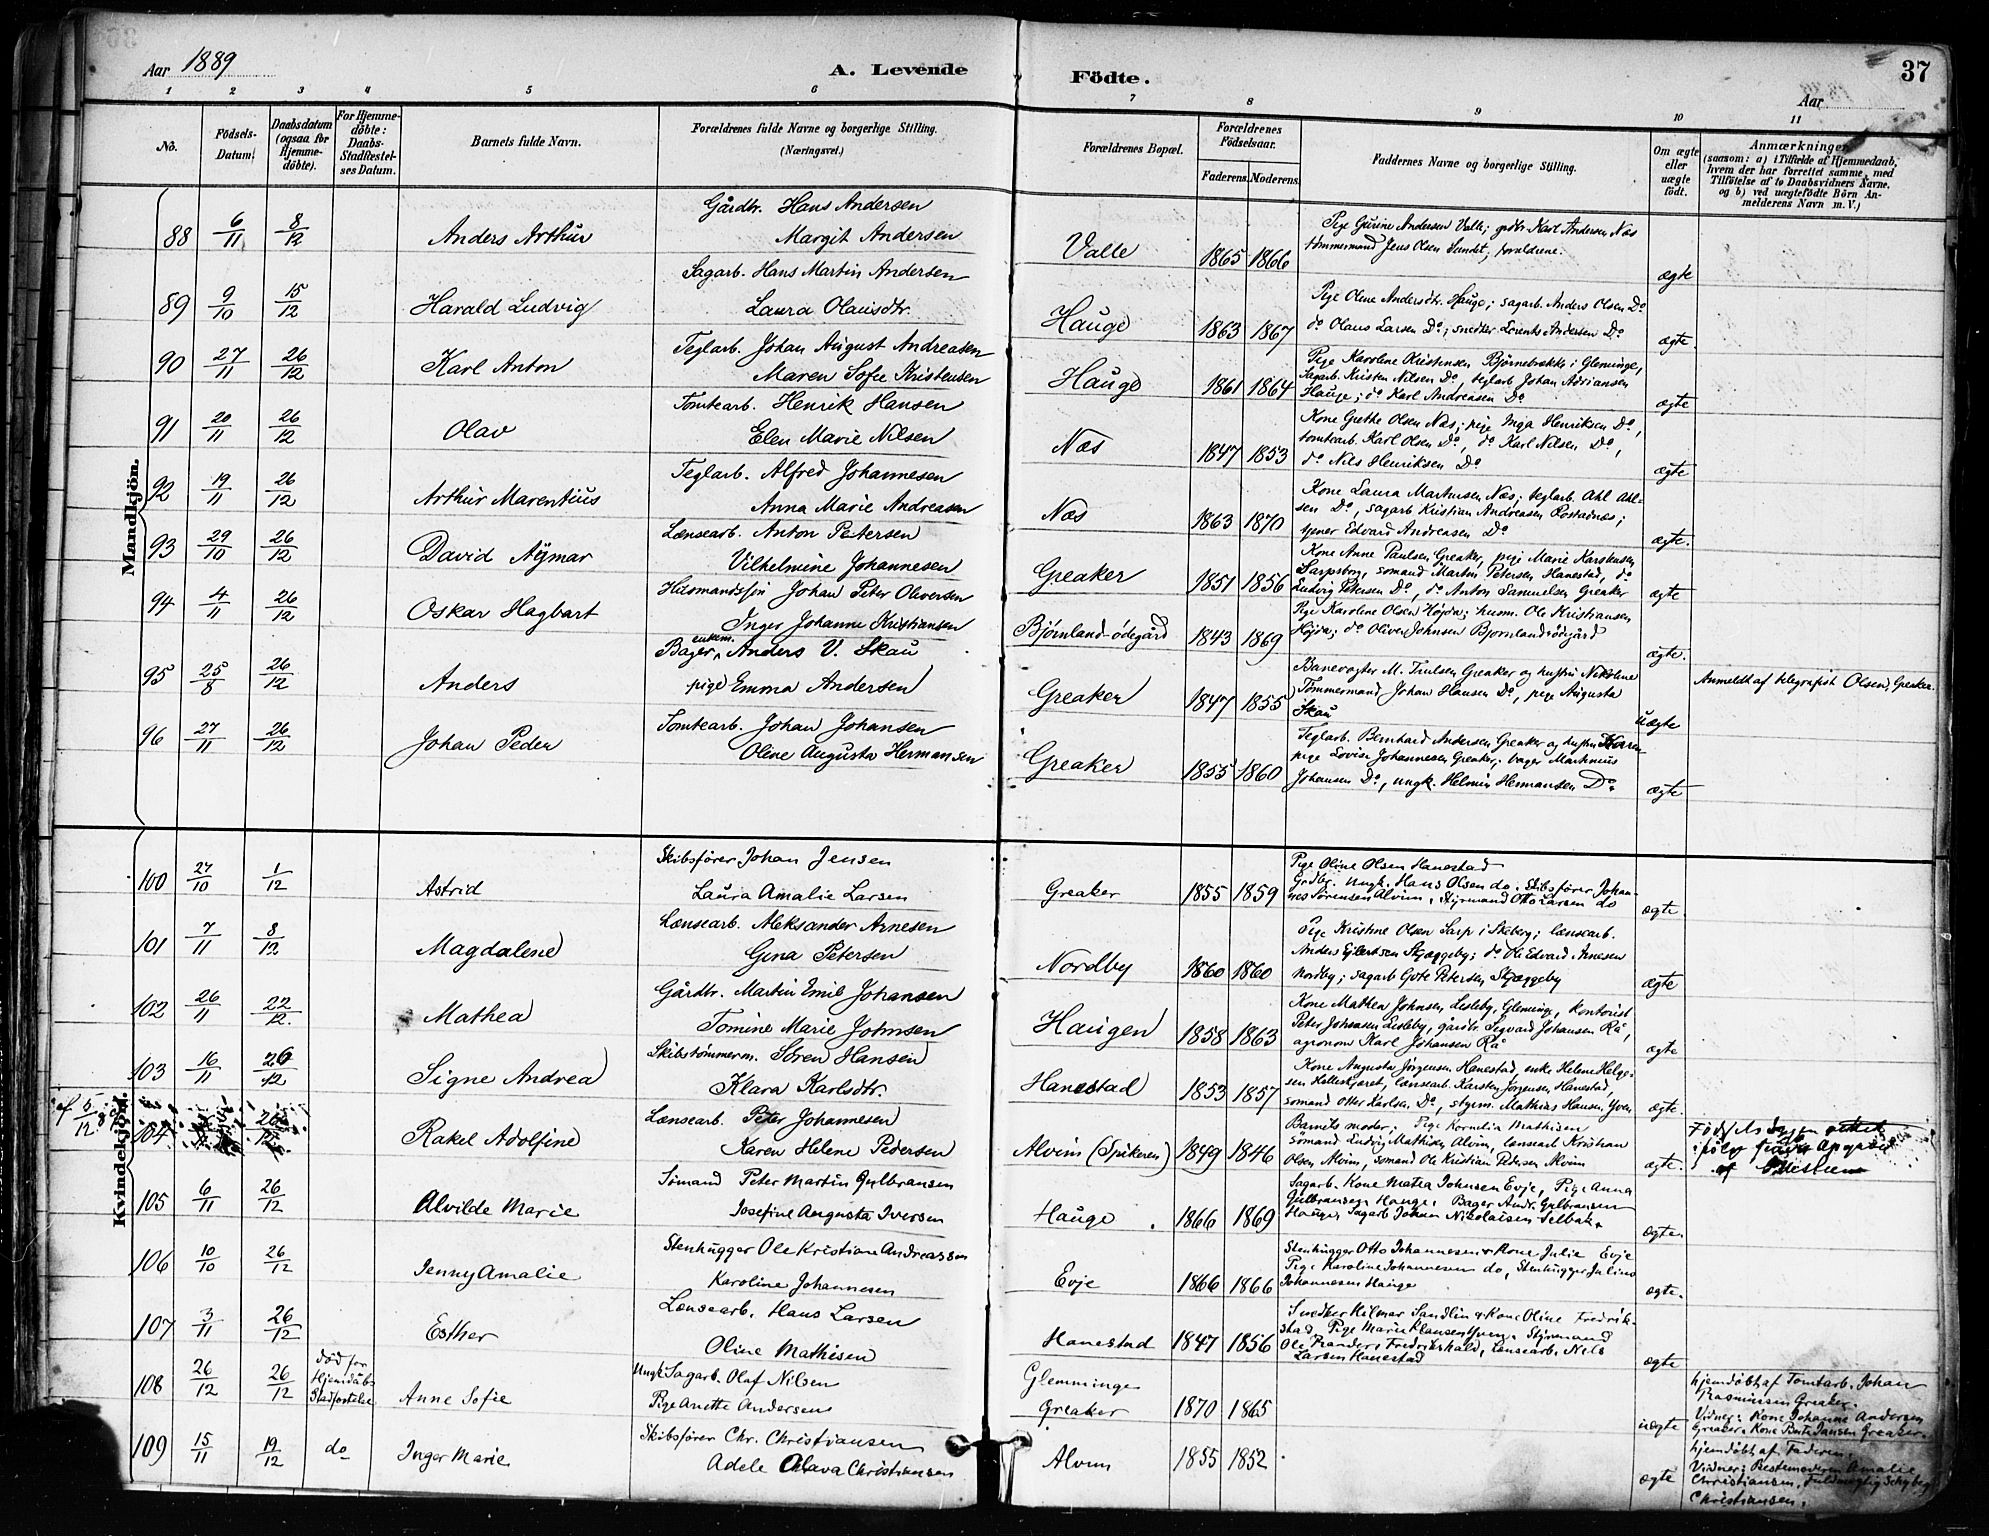 Aar 1889
A. Levende
Födte.
37
Aar
1 2 3 4 5 6 7 8 9 10 11
No.
Födsels-Datum.
Daabsdatum (ogsaa for Hjemme-döbte).
For Hjemme-döbte: Daabs-Stadfæstel-ses Datum.
Barnets fulde Navn.
Forældrenes fulde Navne og borgerlige Stilling. (Næringsvei.)
Forældrenes Bopæl.
Forældrenes Födselsaar.
Faderens. Moderens.
Faddernes Navne og borgerlige Stilling.
Om ægte eller uægte födt.
Anmærkninger
(saasom: a) i Tilfælde af Hjemmedaab,
hvem der har forrettet samme, med
Tilföielse af to Daabsvidners Navne,
og b) ved uægtefödte Börn An-
melderens Navn m. V.)
Mandkjön.
88 6/11 8/12 Anders Arthur
Gårdbr. Hans Andersen
Margit Andersen
Valle 1865 1866
Pige Gurine Andersen Valle; grdbr. Karl Andersen Næs
tømmermand Jens Olsen Sundet; forældrene.
ægte
89 9/10 15/12 Harald Ludvig
Sagarb. Hans Martin Andersen
Laura Olausdtr.
Hauge 1863 1867
Pige Oline Andersdtr. Hauge; sagarb. Anders Olsen Do
do Olaus Larsen Do; snedker Lorents Andersen Do
ægte
90 27/11 26/12 Karl Anton
Teglarb. Johan August Andreasen
Maren Sofie Kristensen
Hauge 1861 1864
Pige Karoline Kristensen Bjørnebække i Glemminge,
Sagarb. Kristen Nilsen Do, teglarb Johan Adriansen
Hauge; do Karl Andreasen Do
ægte
91 20/11 26/12 Olav
Tomtearb. Henrik Hansen
Elen Marie Nilsen
Næs 1847 1853
Kone Grethe Olsen Næs; pige Inga Henriksen Do,
tomtearb. Karl Olsen Do, do Karl Nilsen Do,
do Nils Henriksen Do
ægte
92 19/11 26/12 Arthur Marentius
Teglarb. Alfred Johannesen
Anna Marie Andreasen
Næs 1863 1870
Kone Laura Martinsen Næs; teglarb. Ahl Ahl-
sen Do, sagarb Kristian Andreasen
Edvard Andreasen Do
ægte.
93 29/10 26/12 David Ajmar
Lænsearb. Anton Petersen
Vilhelmine Johannesen
Greaker 1851 1856
Kone Anne Paulsen Greaker, pige Marie Karstensen
Sarpsborg, sømand Martin Petersen Hanestad, do
Ludvig Petersen Do, do Anton Samuelsen Greaker
ægte
94 4/11 26/12 Oskar Hagbart
Husmandssøn Johan Peter Oliversen
Inger Johanne Kristiansen
Bjørnland-ødegård 1843 1869
Pige Karoline Olsen Højda; husm. Ole Kristiansen
Højda; do Oliver Johnsen Bjørnlandsødgård
ægte.
95 25/8 26/12 Anders
Bager, enkem. Anders V. Skau
pige Emma Andersen
Greaker 1847 1855
Banevogter M. Trulsen Greaker og hustru Nikoline
Tømmermand Johan Hansen Do, pige Augusta
Skau
uægte
Anmeldt af telegrafist Olsen, Greaker.
96 27/11 26/12 Johan Peder
Tomtearb. Johan Johansen
Oline Augusta Hermansen
Greaker 1855 1860
Teglarb. Bernhard Andersen Greaker og hustru Karen
pige Lovise Johannesen Greaker, bager Martinius
Johansen Do, ungk. Helmin Hermansen Do.
ægte
Kvindekjön.
100 27/10 1/12 Astrid
Skibsfører Johan Jensen
Laura Amalie Larsen
Greaker 1855 1859
Pige Oline Olsen Hanestad
Grdbr. Ungk. Hans Olsen do. Skibsfører Johan-
nes Sørensen Alvim, Styrmand Otto Larsen do
ægte.
101 7/11 8/12 Magdalene
Lænsearb. Aleksander Arnesen
Gina Petersen
Nordby 1860 1860
Pige Kristine Olsen Sarp i Skeberg; lænsearb.
Anders Ejlertsen Skjæggeby; do Ole Edvard Arnesen
Nordby; sagarb Gote Petersen Skjæggeby
ægte
102 26/11 22/12. Mathea
Gårdbr. Martin Emil Johansen
Tomine Marie Johnsen
Haugen 1858 1863
Kone Mathea Johnsen Lisleby, Glemminge, kontorist
Peter Johnsen Lisleby, gårdbr. Sigvard Johansen Rå,
agronom Karl Johansen Rå
ægte
103 16/11 26/12 Signe Andrea
Skibstømmerm. Søren Hansen
Klara Karlsdtr.
Hanestad 1853 1857
Kone Augusta Jørgensen Hanestad, enke Helene Helge-
sen, lænsearb. Karsten Jørgensen, Hanestad,
sømand Otter Karlsen Do, styrm. Mathias Hansen, Yven
ægte.
104 26/12 Rakel Adolfine
Lænsearb. Peter Johannesen
Karen Helene Pedersen
Alvim (Spikeren) 1849 1846
Barnets moder; Pige Kornelia Mathisen
sømand Ludvig Mathisen Alvim, lænsearb Kristian
Olsen Alvim, sømand Ole Kristian Pedersen Alvim
ægte.
105 6/11 26/12 Alvilde Marie
Sømand Peter Martin Gulbransen
Josefine Augusta Iversen
Hauge 1866 1869
Sagarb. Kone Matea Johnsen Evje, Pige Anna
Gulbransen Hauge. Bager Andr. Gulbransen
Hauge, Sagarb Johan Nikolaisen Selbak.
ægte
106 10/10 26/12 Jenny Amalie
Stenhugger Ole Kristian Andreassen
Karoline Johannesen
Evje 1866 1866
Stenhugger Otto Johannesen & Kone Julie Evje
Pige Karoline Johannesen do, Stenhugger Julius
Johannesen Hauge
ægte.
107 3/11 26/12 Esther
Lænsearb. Hans Larsen
Oline Mathisen
Hanestad 1847 1856
Snedker Hilmar Sandlin & Kone Oline Fredrik-
stad, Pige Marie Klausen, Styrmand
Ole Fredrikshald, Lænsearb. Nils
Larsen Hanestad
ægte
108 26/12 26/12 død før Hjemdåbs Stadfæstelse Anne Sofie
Ungk Sagarb. Olaf Nilsen
Pige Anette Andersen
Glemminge
Greaker 1870 1865
uægte
hjemdøbt af Tomtarb. Johan
Rasmussen Greaker.
Vidner: Kone Johanne Andersen
Greaker. Kone Berte Jansen Greaker.
109 15/11 19/12 do Inger Marie
Skibsfører Chr. Christiansen
Adele Olava Christiansen
Alvim 1855 1852
ægte
hjemdøbt af Faderen.
Vidner: Bestemoderen Amalie
Christiansen, Fuldmægtig
Christiansen.